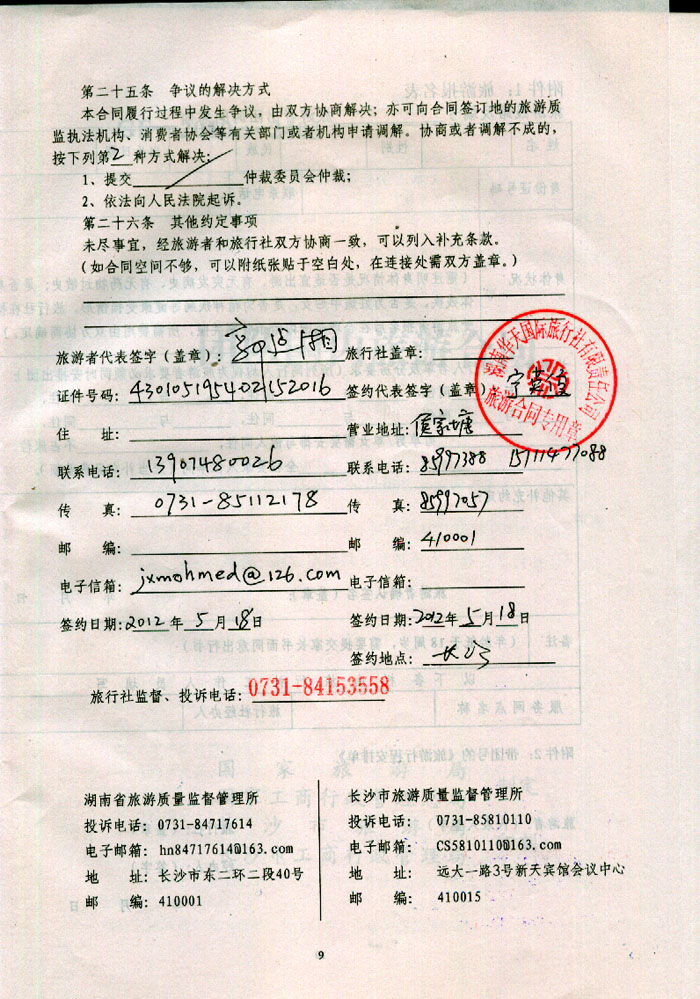 第二十五条　争议的解决方式
本合同履行过程中发生争议，由双方协商解决；亦可向合同签订地的旅游质
监执法机构、消费者协会等有关部门或者机构申请调解。协商或者调解不成的，
按下列第2种方式解决：
1、提交__________仲裁委员会仲裁；
2、依法向人民法院起诉。
第二十六条　其他约定事项
未尽事宜，经旅游者和旅行社双方协商一致，可以列入补充条款。
（如合同空间不够，可以附纸张贴于空白处，在连接处需双方盖章。）
旅游者代表签字（盖章）：
旅行社盖章：
湖南华天国际旅行社有限责任公司
旅游合同专用章
证件号码：430105195402152016
签约代表签字（盖章）
住　　址：
营业地址：侯家塘
联系电话：13907480026
联系电话：85997388 15111477088
传　　真：0731-85112178
传　　真：85997057
邮　　编：
邮　　编：410001
电子信箱：jxmohmed@126.com
电子信箱：
签约日期：2012年5月18日
签约日期：2012年5月18日
签约地点：长沙
旅行社监督、投诉电话：0731-84153558
湖南省旅游质量监督管理所
投诉电话：0731-84717614
电子邮箱：hn84717614@163.com
地　　址：长沙市东二环二段40号
邮　　编：410001
长沙市旅游质量监督管理所
投诉电话：0731-85810110
电子邮箱：CS5810110@163.com
地　　址：远大一路3号新天宾馆会议中心
邮　　编：410015
9